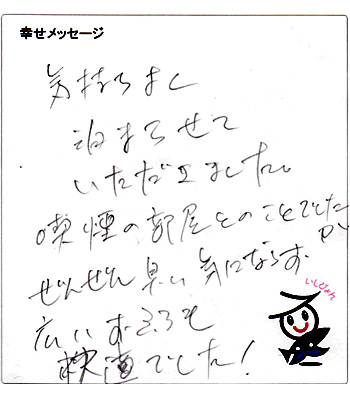 幸せメッセージ
気持ちよく
泊まらせて
いただきました。
喫煙の部屋とのことでした
が
ぜんぜん臭い気にならず
広いおふろも
快適でした!
いしじゃん